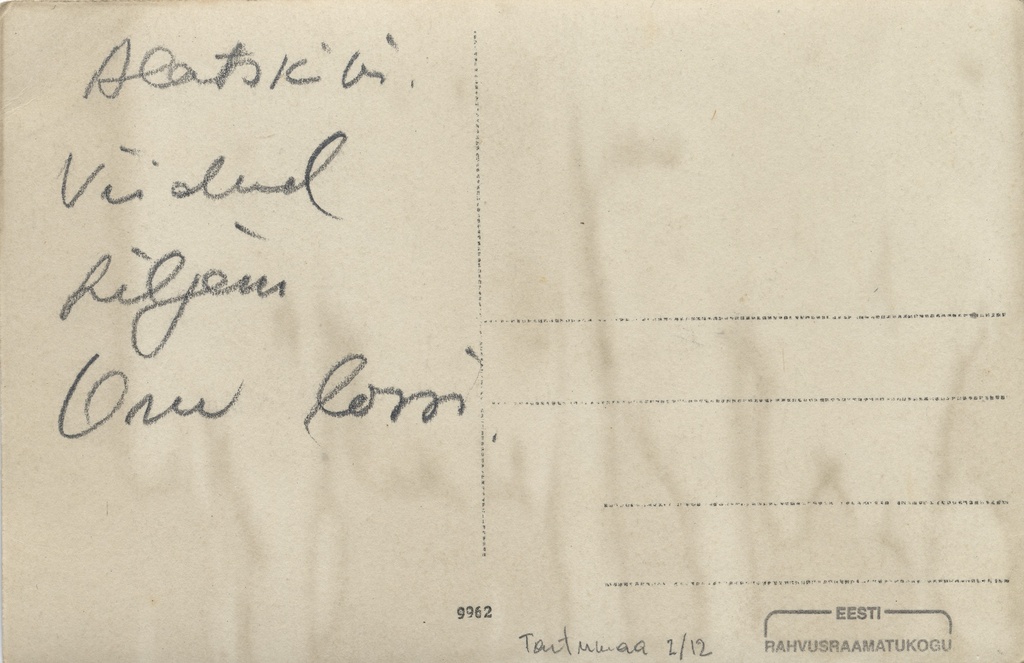 Alatskivi.
Viidud
hiljem
Oru lossi.
9962
Tartumaa 2/12
EESTI
RAHVUSRAAMATUKOGU